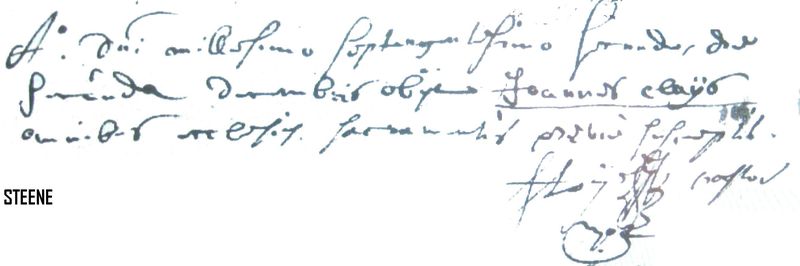 A°. Dni millesimo septingentesimo secundo, die
secunda decembris obijt Joannes claijs
omnibus ecclesie sacramentis prius susceptis.
pastor
STEENE